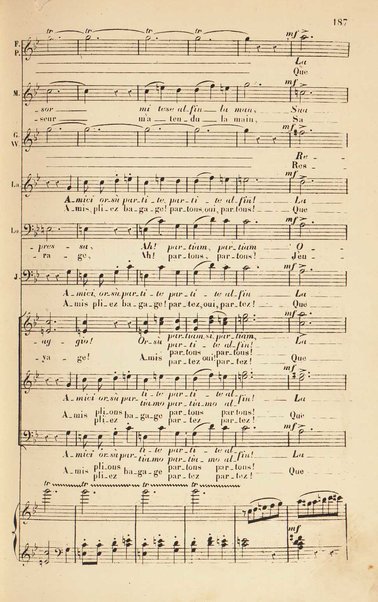 187
F.
P.
La
Que
mf
M.
sor mi tese al_fin la man, Sua
seur m'a ten_du la main, Sa
mf
G.
W
Re_
Res_
La
A_mici or_sù par_ti_te, par_ti_te al_fin! La
A_mis, pli_ez ba_ga_ge! par_tons, oui, par_tons! Que
Lo
pres_sa, Ah! partiam, partiam O_
ra_ge, Ah! partons, partons! Jeu_
J
A_mici, or_sù par_ti_te par_ti_te al_fin La
A_mis pli_ez ba_ga_ge! par_tez, oui, par_tez! Que
ag_gio! Or_sù partiam, si, partiam, La
par_ti_te al_fin!
ya_ge! A_mis partons partons! Que
par_tez oui par_tez!
mf
A_mici or_sù par_ti_te par_ti_te al_fin! La
tia_mo par_tia_mo al_fin!
A_mis pli_ons ba_ga_ge partons partons! Que
pli_ez par_tez par_tez!
mf
A_mici or_sù par_ti_te par_ti_te al_fin! La
tia_mo par_tia_mo al_fin!
A_mis pli_ons ba_ga_ge partons partons! Que
pli_ez par_tez par_tez!
mf